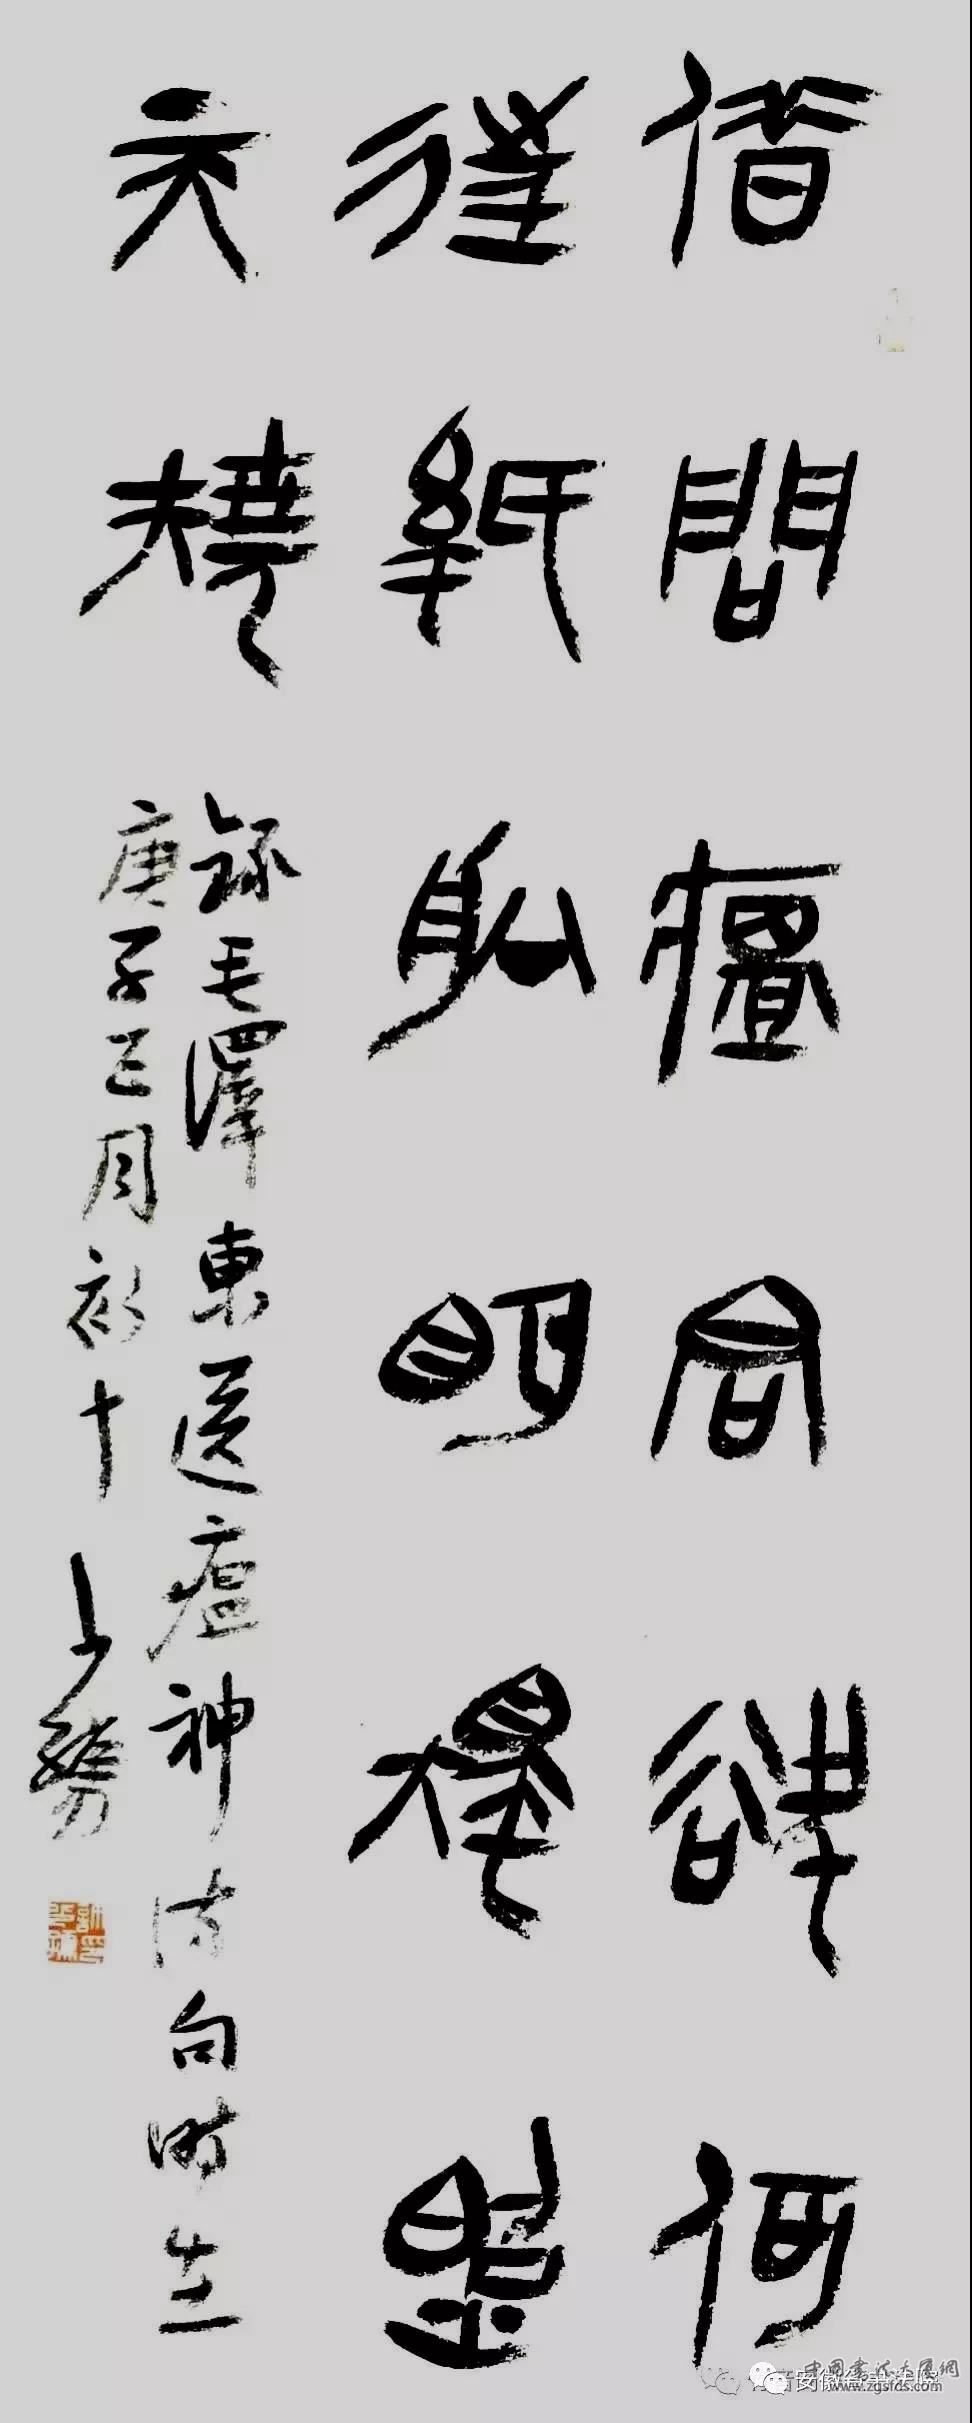 借問瘟君欲何
往紙船明燭照
天燒
錄毛澤東送瘟神詩句時在
庚子三月初十
中国书法大厦网
www.zgsfds.com